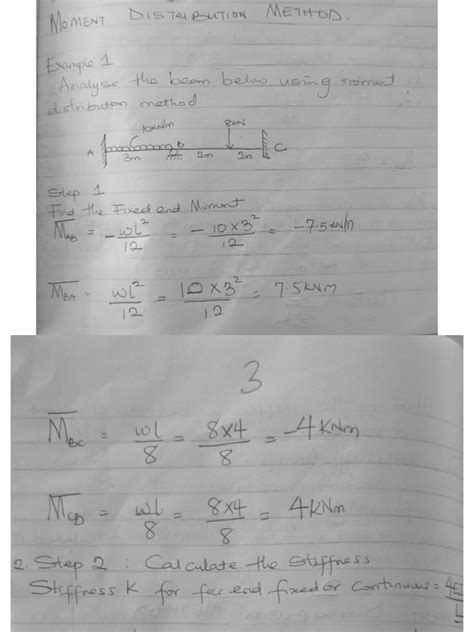 MOMENT DISTRIBUTION METHOD.
Example 1
Analyse the beam below using moment
distribution method
10kN/m 8kN
A B C
3m 2m 2m
Step 1
Find the Fixed end Moment
M̅AB = -wl²/12 = -10×3²/12 = -7.5kN/m
M̅BA = wl²/12 = 10×3²/12 = 7.5KNM
3
M̅BC = wl/8 = 8×4/8 = -4KNm
M̅CB = wl/8 = 8×4/8 = 4KNm
2. Step 2 : Calculate the Stiffness
Stiffness K for far end fixed or Continuous = 4EI/L